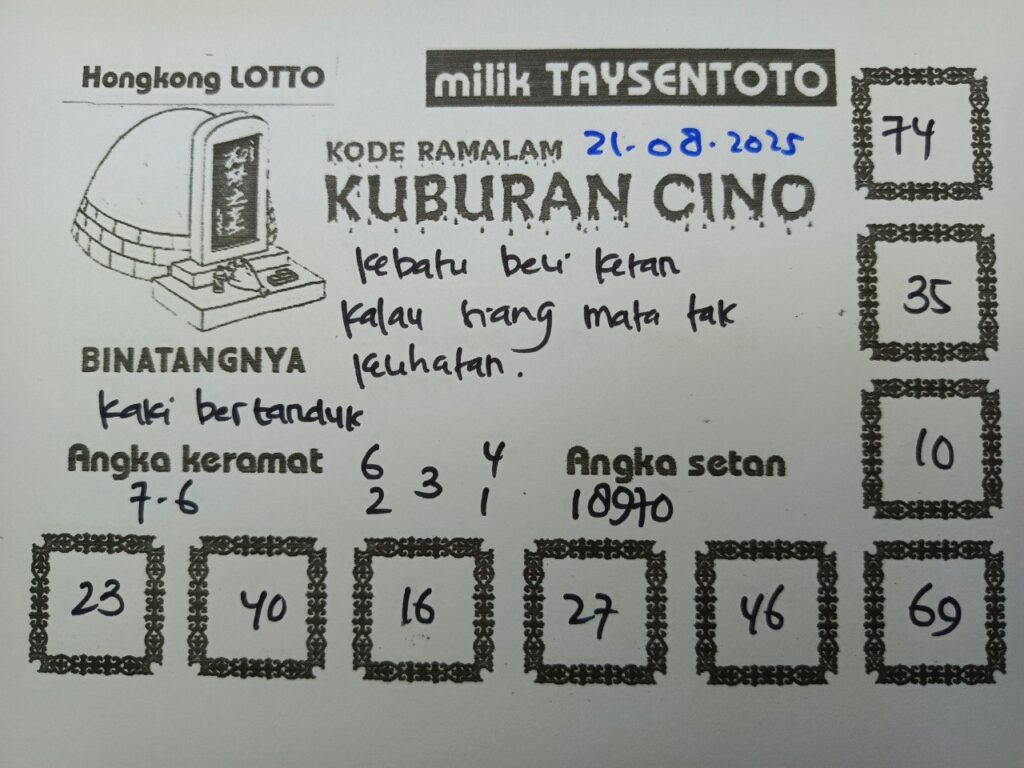 Hongkong LOTTO
milik TAYSENTOTO
KODE RAMALAM 21.08.2025
KUBURAN CINO
kebatu beli ketan
kalau riang mata tak
kelihatan.
BINATANGNYA
kaki bertanduk
Angka keramat
7-6
6 3 4
2 1
Angka setan
18970
74
35
10
23 40 16 27 46 69